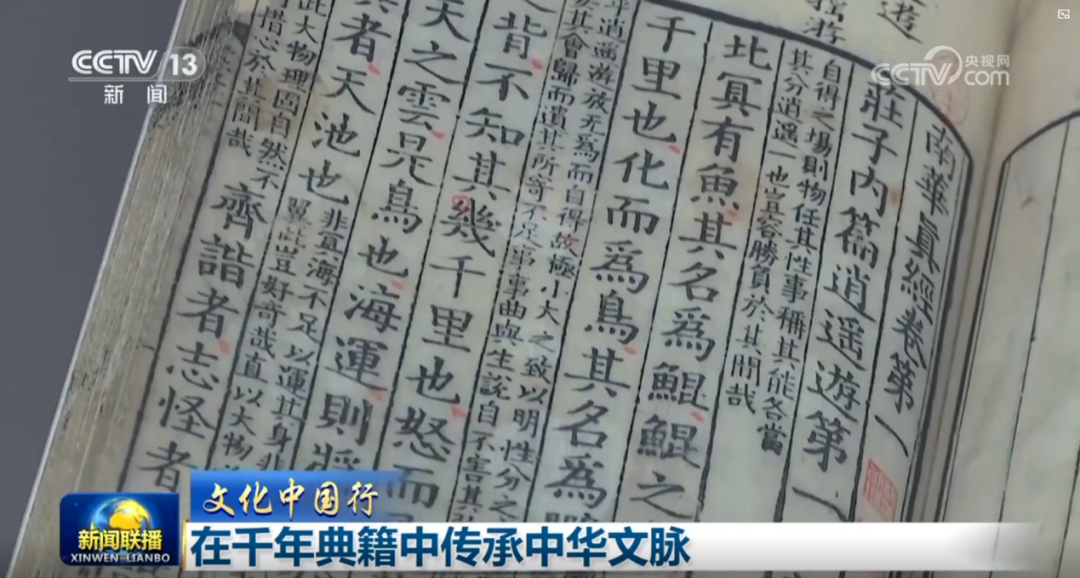 CCTV 13
新闻
CCTV 央视网
com
南華真經卷第一
莊子内篇逍遥遊第一
自得之場則物任其性事稱其能各當
其分逍遥一也豈容勝負於其間哉
北冥有魚其名為鯤鯤之
千里也化而為鳥其名為
逍遥游放无為而自得故極小大之致以明性分之
其會歸而遺其所寄不足事事曲與生說自不害其
之背不知其幾千里也怒而
天之雲是鳥也海運則將
者天池也
非冥海不足以運其身非
翼此豈好奇哉直以大物
此大物理固自然不
措心於其間哉
齊諧者志怪者
文化中国行
新闻联播
XINWEN LIANBO
在千年典籍中传承中华文脉